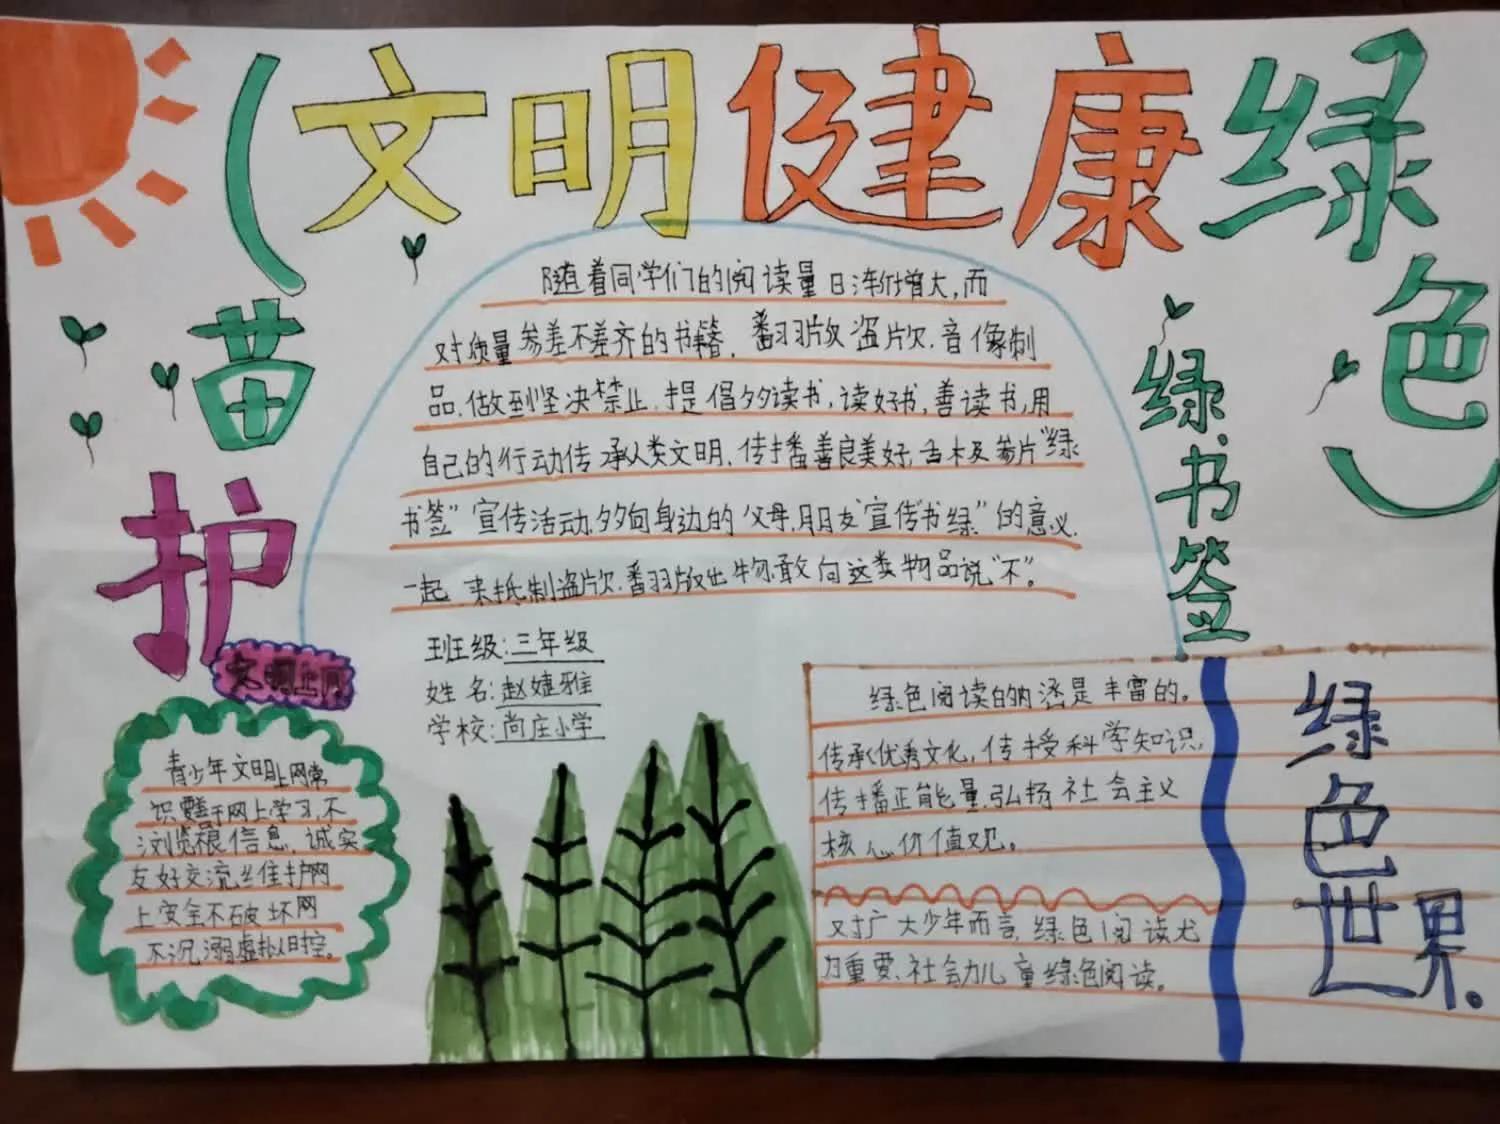 (文明健康绿色)
护苗
绿书签
随着同学们的阅读量日渐增大,而
对质量参差不差齐的书籍,翻版盗版,音像制
品,做到坚决禁止,提倡多读书,读好书,善读书,用
自己的行动传承人类文明,传播善良美好,
书签"宣传活动,多向身边的父母,朋友宣传"书绿"的意义,
一起来抵制盗版,翻版出物,敢向这类物品说"不"。
班级:三年级
姓名:赵婕雅
学校:尚庄小学
文明上网
青少年文明上网常
识要善于网上学习,不
浏览 信息,诚实
友好交流维护网
上安全不破坏网
不沉溺虚拟时空。
绿色阅读的内涵是丰富的。
传承优秀文化,传授科学知识,
传播正能量,弘扬社会主义
核心价值观。
对广大少年而言,绿色阅读尤
为重要、社会幼儿童绿色阅读。
绿色世界。